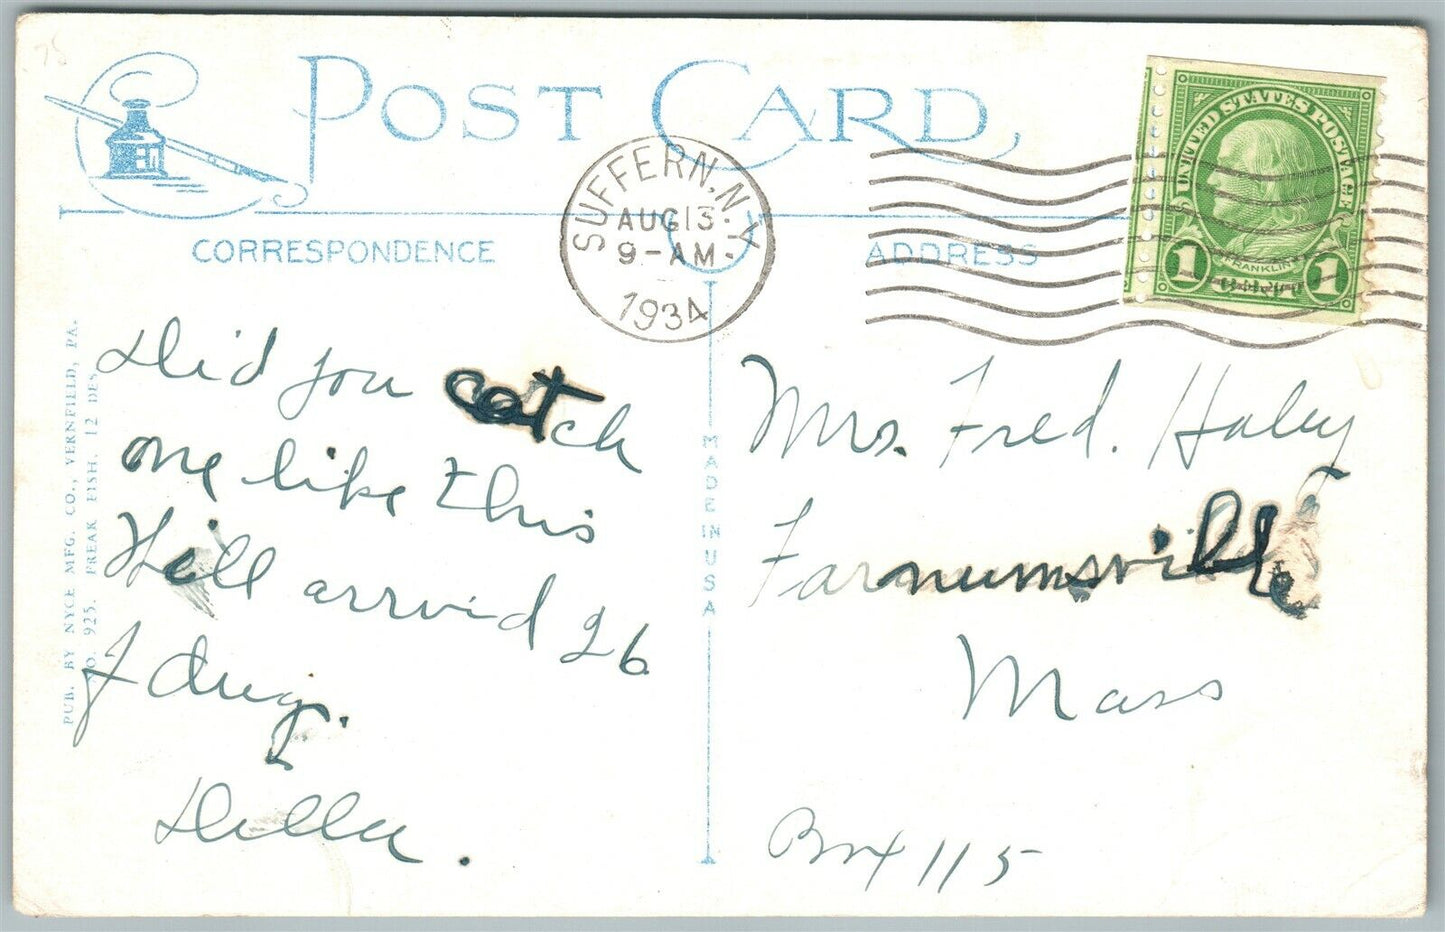 75
POST CARD
CORRESPONDENCE
ADDRESS
SUFFERN, N.Y.
AUG 13
9-AM
1934
UNITED STATES POSTAGE
FRANKLIN
1 CENT 1
Did you catch
one like this
Will arrvid 26
of Aug.
Della.
Mrs. Fred. Haley
Farnumsville
Mass
Box 115
MADE IN USA
PUB. BY NYCE MFG. CO., VERNFIELD, PA.
NO. 925. FREAK FISH. 12 DES.